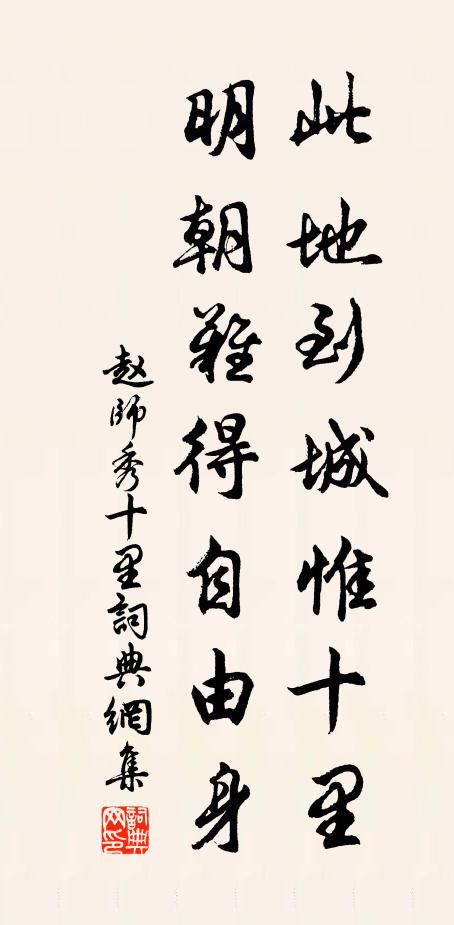 此地到城惟十里
明朝難得自由身
赵師秀十里詞典網集
詞典网印